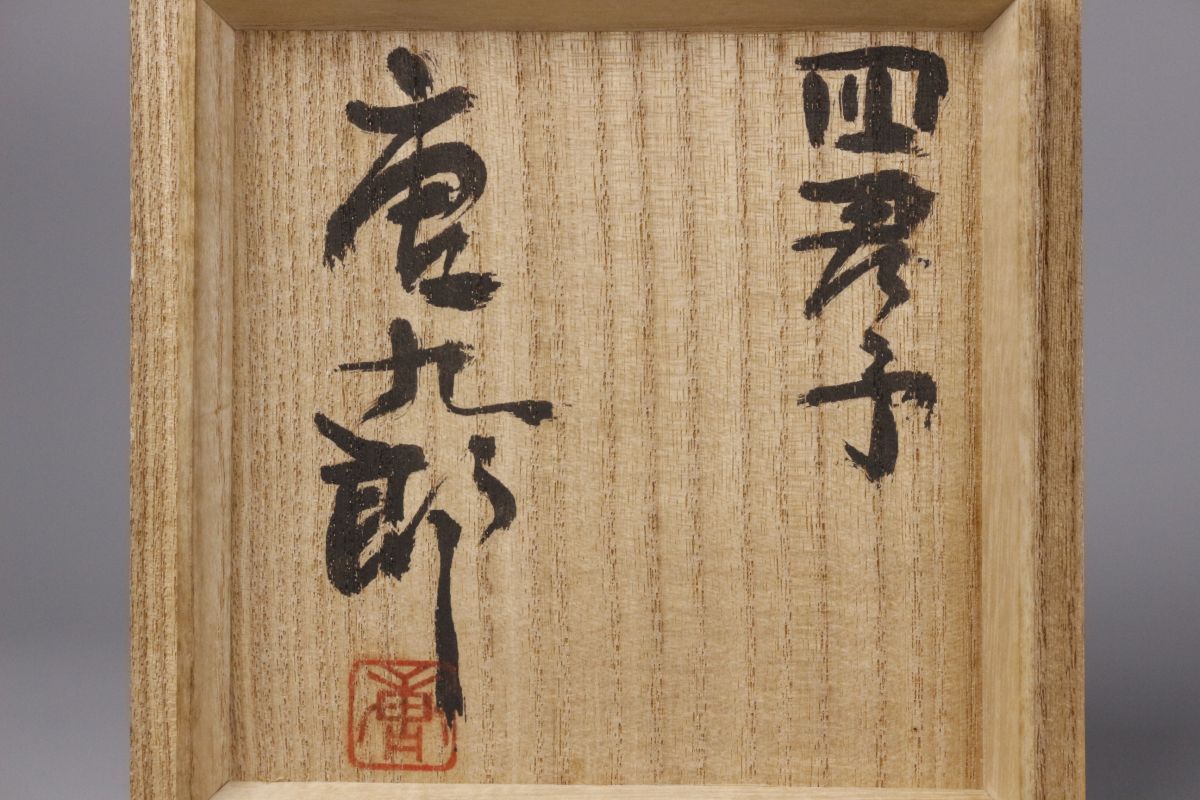 四君子
唐九郎